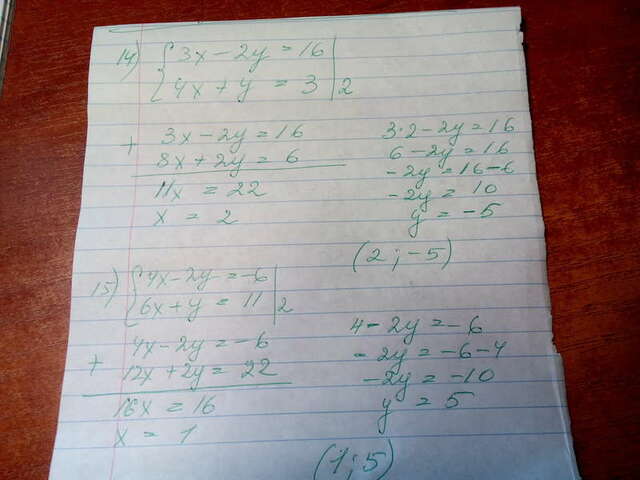 14) { 3x - 2y = 16
4x + y = 3 | 2
+ 3x - 2y = 16
8x + 2y = 6
11x = 22
x = 2
3·2 - 2y = 16
6 - 2y = 16
-2y = 16 - 6
-2y = 10
y = -5
(2 ; -5)
15) { 4x - 2y = -6
6x + y = 11 | 2
+ 4x - 2y = -6
12x + 2y = 22
16x = 16
x = 1
4 - 2y = -6
-2y = -6 - 4
-2y = -10
y = 5
(1 ; 5)